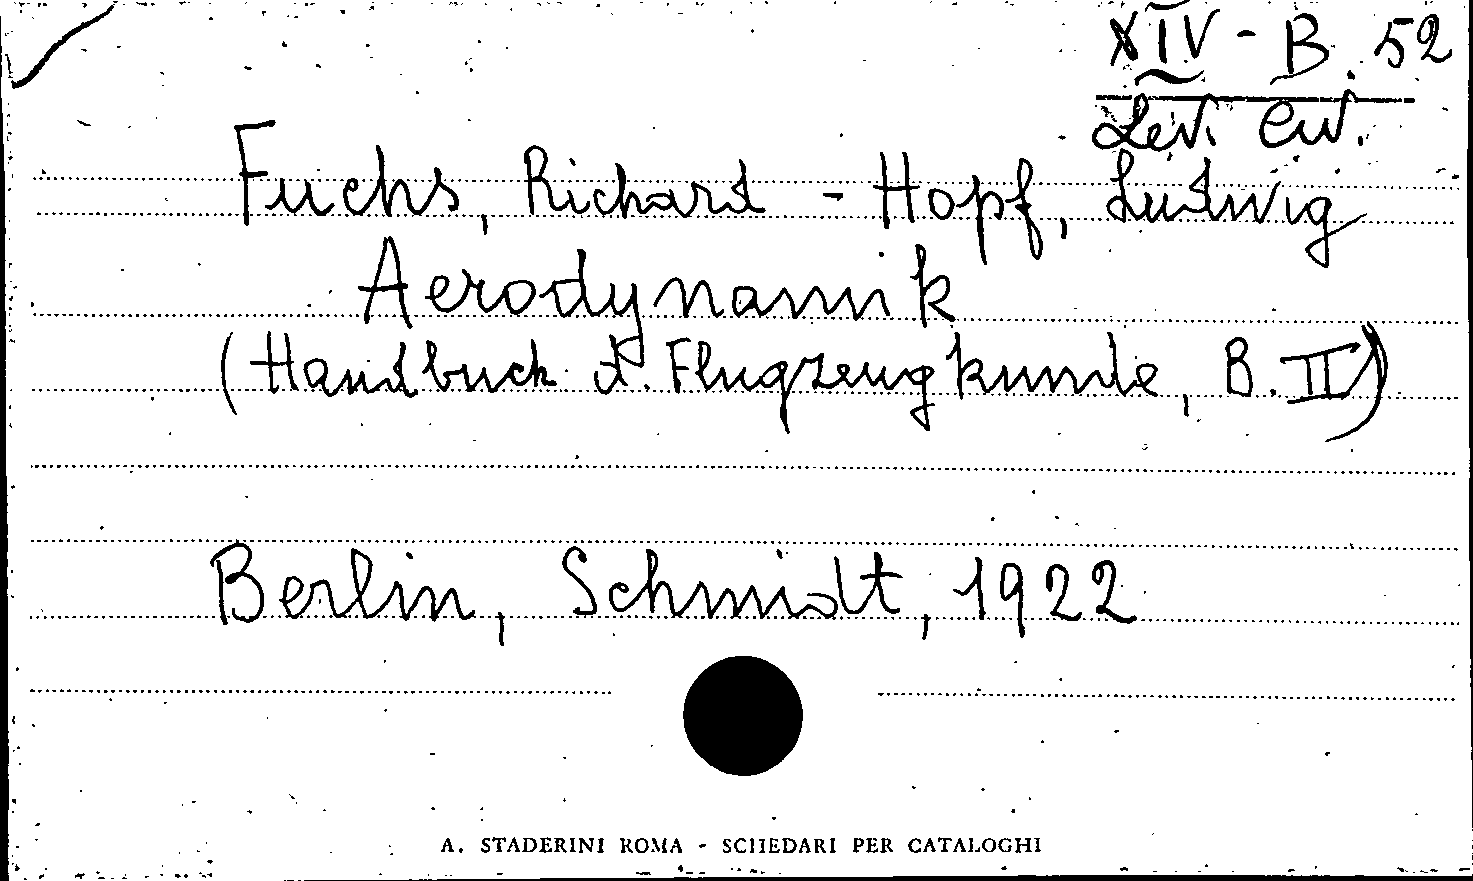 XIV - B. 52
Lev. Civ.
Fuchs, Richard - Hopf, Ludwig
Aerodynamik
(Handbuch d. Flugzeugkunde, B. II)
Berlin, Schmidt, 1922
A. STADERINI ROMA - SCHEDARI PER CATALOGHI